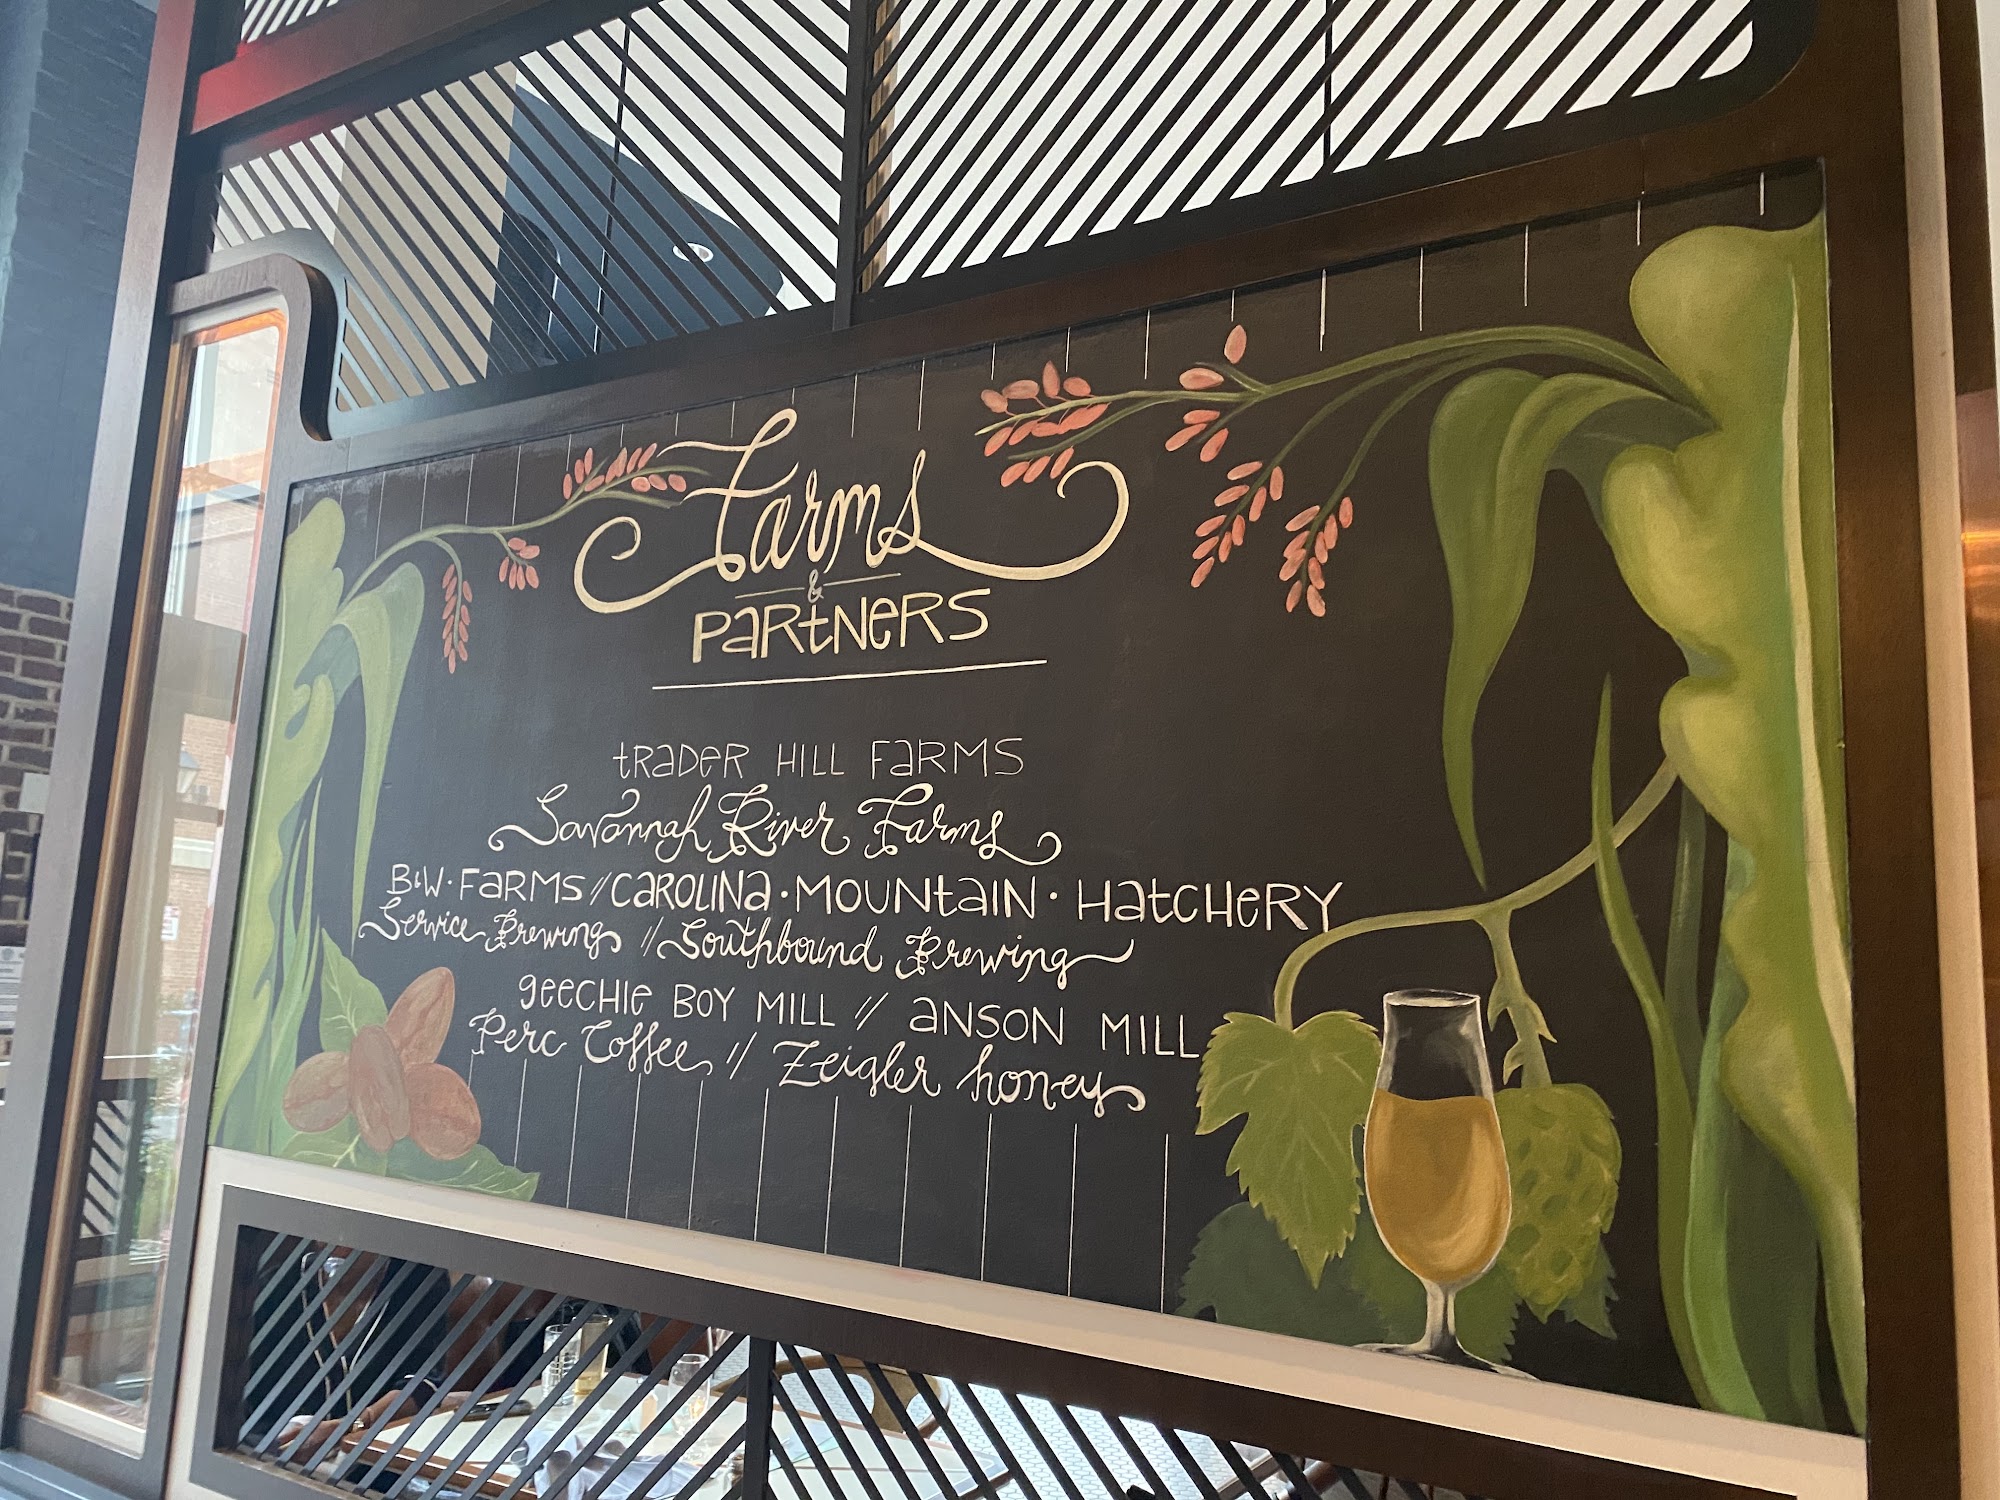 Farms
&
PARtNeRS
tRADeR HILL FaRMS
Savannah River Farms
B&W · FaRMS // CAROLINa · MOUNtaIN · HatCHeRY
Service Brewing // Southbound Brewing
geeCHIe BOY MILL // aNSON MILL
Perc Coffee // Zeigler honey